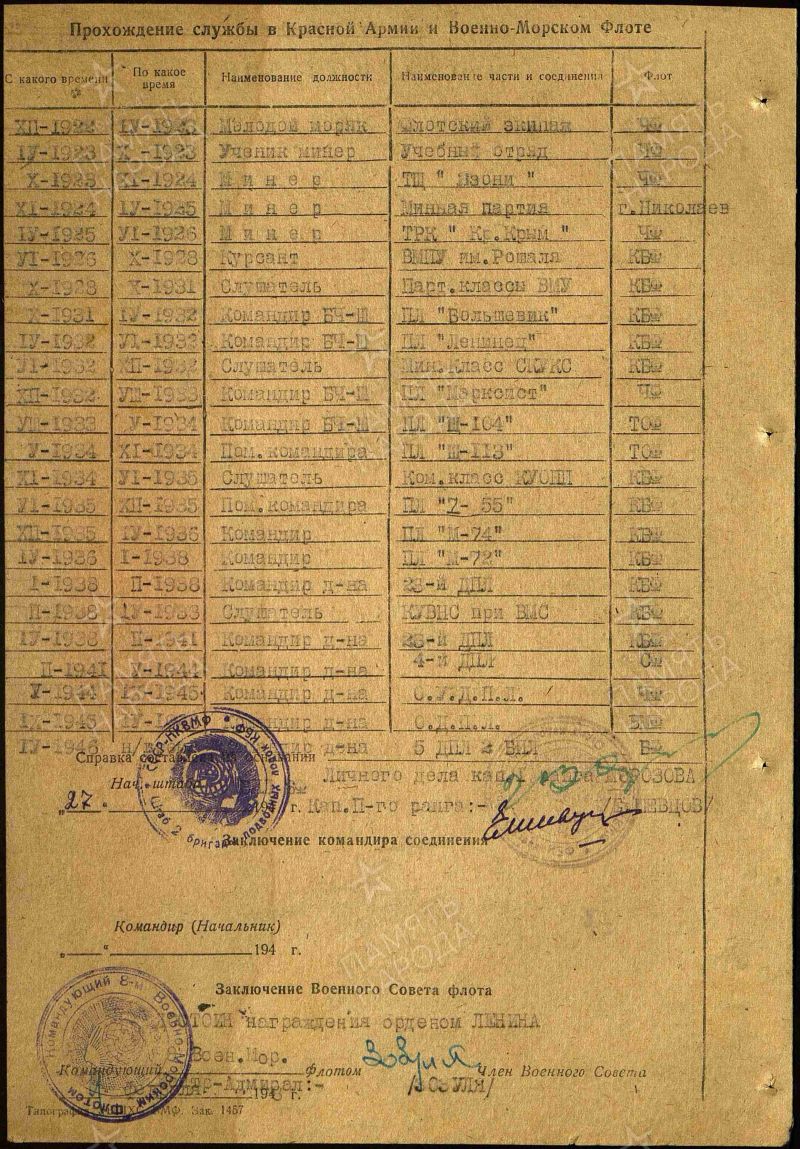 Прохождение службы в Красной Армии и Военно-Морском Флоте
С какого времени По какое время Наименование должности Наименование части и соединения Флот
ХП-1922 IУ-1923 Молодой моряк Флотский экипаж ЧФ
IУ-1923 Х-1923 Ученик минер Учебный отряд ЧФ
Х-1923 ХI-1924 М и н е р ТЩ " Язони " ЧФ
ХI-1924 IУ-1925 М и н е р Минная партия г.Николаев
IУ-1925 УI-1926 М и н е р ТРК " Кр.Крым " ЧФ
УI-1926 Х-1928 Курсант ВМПУ им.Рошаля КБФ
Х-1928 Х-1931 Слушатель Парт.классы ВМУ КБФ
Х-1931 IУ-1932 Командир БЧ-Ш ПЛ "Большевик" КБФ
IУ-1932 УI-1932 Командир БЧ-Ш ПЛ "Ленинец" КБФ
УI-1932 ХП-1932 Слушатель Мин.класс СКУКС КБФ
ХП-1932 УШ-1933 Командир БЧ-Ш ПЛ "Марксист" ЧФ
УШ-1933 У-1934 Командир БЧ-Ш ПЛ "Щ-104" ТОФ
У-1934 ХI-1934 Пом.командира ПЛ "Щ-113" ТОФ
ХI-1934 УI-1935 Слушатель Ком.класс КУОПП КБФ
УI-1935 ХП-1935 Пом.командира ПЛ 55" КБФ
ХП-1935 IУ-1936 Командир ПЛ "М-74" КБФ
IУ-1936 I-1938 Командир ПЛ "М-72" КБФ
I-1938 П-1938 Командир д-на 23-й ДПЛ КБФ
П-1938 Слушатель КУВНС при ВМС КБФ
IУ-1938 П-1941 Командир д-на 23-й ДПЛ КБФ
П-1941 У-1944 Командир д-на 4-й ДПЛ СФ
У-1944 IХ-1945 Командир д-на О.У.Д.П.Л. ЧФ
IХ-1945 О.Д.П.Л.
IУ-1946 д-на 5 ДПЛ 2 БПЛ
Справка составлена на основании
Личного дела кап.
Нач. штаба
„27 " 194 г. Кап.П-го ранга:- /ЕЛШЕВЦОВ/
СССР-НКВМФ
Штаб 2 бригады подводных лодок КБФ
Заключение командира соединения
Командир (Начальник)
„ " 194 г.
Заключение Военного Совета флота
ДОСТОИН награждения орденом ЛЕНИНА
Воен.Мор.
Командующий Флотом Член Военного Совета
Адмирал:-
194 г.
Командующий 8-м Военно-Морским Флотом
Типография Зак. 1457
ПАМЯТЬ НАРОДА